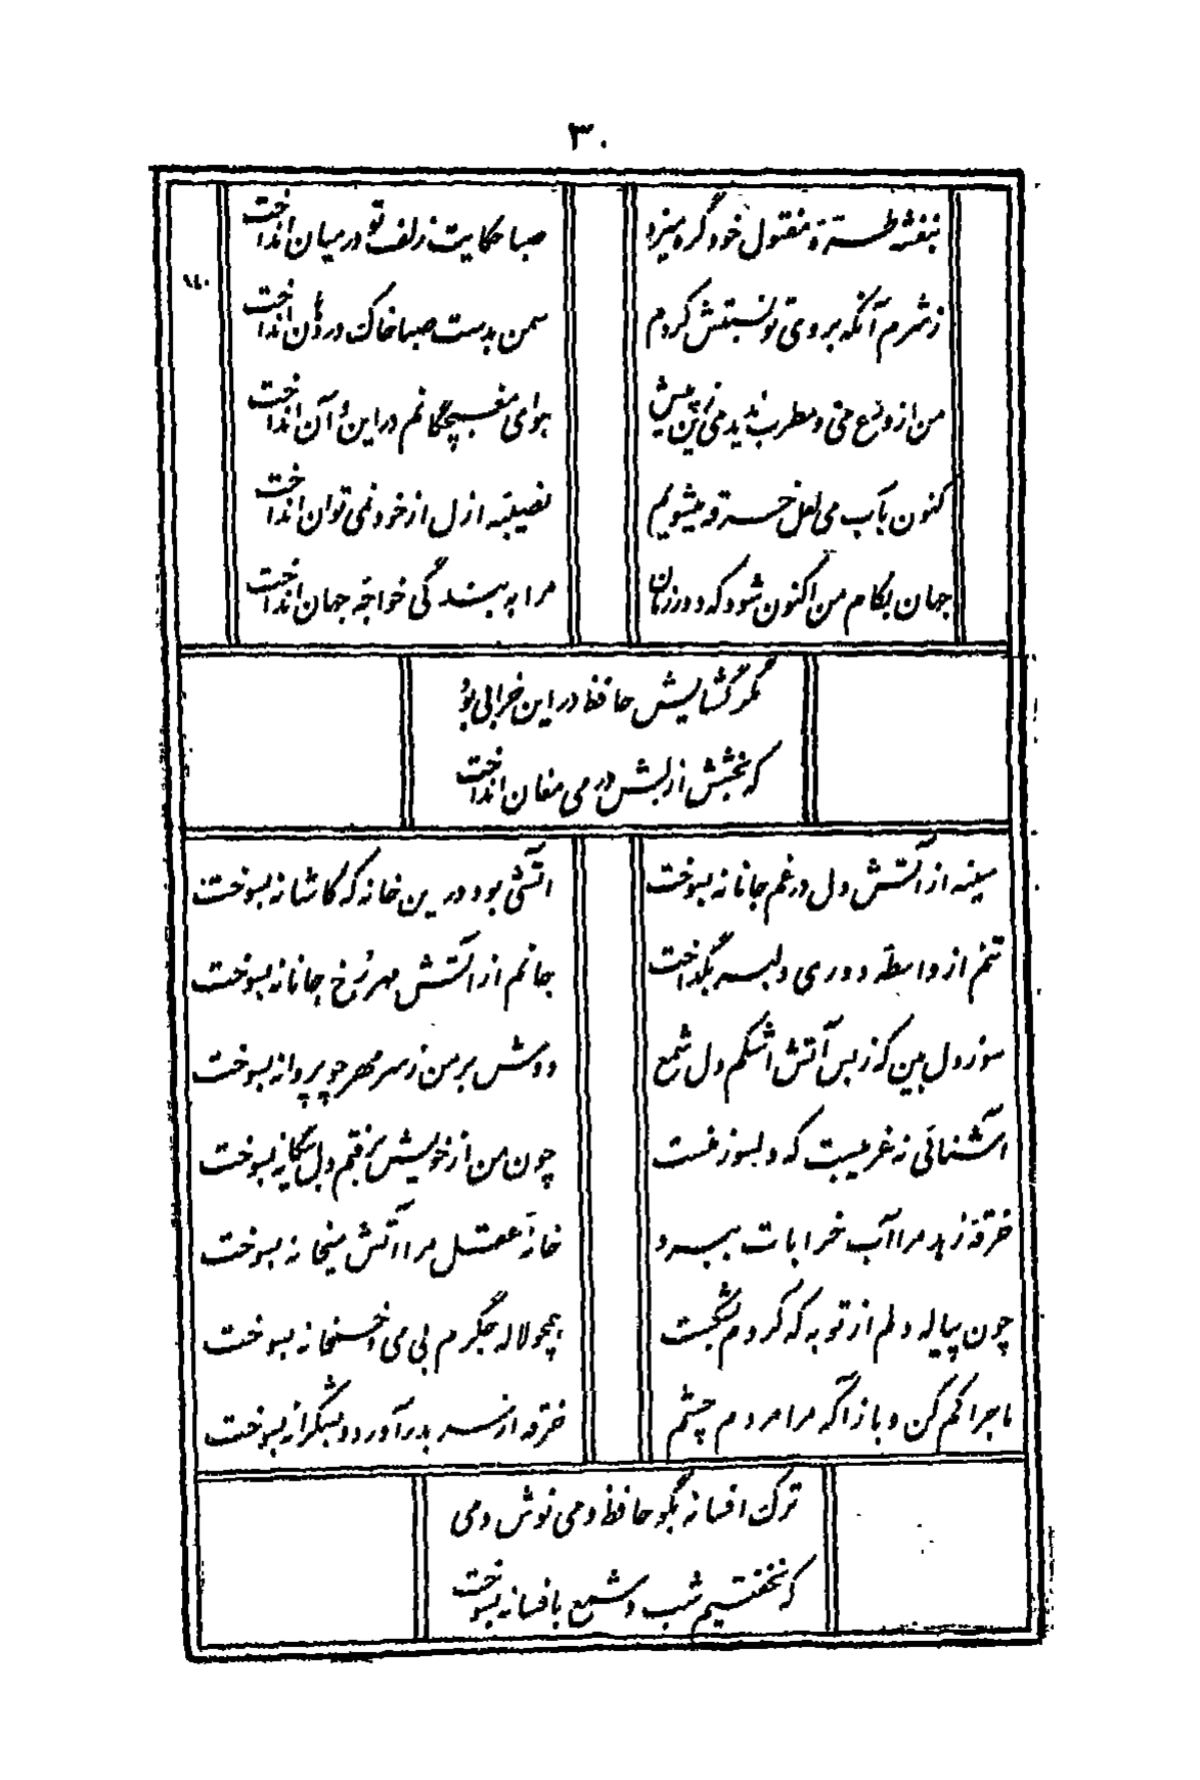 ۳۰
بنفشه طرهٔ مفتول خود گره میزد
صبا حکایت زلف تو در میان انداخت
۱۴۰
ز شرم آنکه بروی تو نسبتش کردم
سمن بدست صبا خاک در دهان انداخت
من از ورع می و مطرب ندیدمی زین پیش
هوای مغبچگانم در این و آن انداخت
کنون بآب می لعل خرقه میشویم
نصیبهٔ ازل از خود نمی توان انداخت
جهان بکام من اکنون شود که دور زمان
مرا به بندگی خواجهٔ جهان انداخت
مگر گشایش حافظ در این خرابی بود
که بخشش ازلش در می مغان انداخت
سینه از آتش دل در غم جانانه بسوخت
آتشی بود درین خانه که کاشانه بسوخت
تنم از واسطه دوری دلبر بگداخت
جانم از آتش مهر رخ جانانه بسوخت
سوز دل بین که ز بس آتش اشکم دل شمع
دوش بر من ز سر مهر چو پروانه بسوخت
آشنائی نه غریبست که دلسوز منست
چون من از خویش برفتم دل بیگانه بسوخت
خرقهٔ زهد مرا آب خرابات ببرد
خانهٔ عقل مرا آتش میخانه بسوخت
چون پیاله دلم از توبه که کردم بشکست
همچو لاله جگرم بی می و خمخانه بسوخت
ماجرا کم کن و بازآ که مرا مردم چشم
خرقه از سر بدر آورد و بشکرانه بسوخت
ترک افسانه بگو حافظ و می نوش دمی
که نخفتیم شب و شمع بافسانه بسوخت